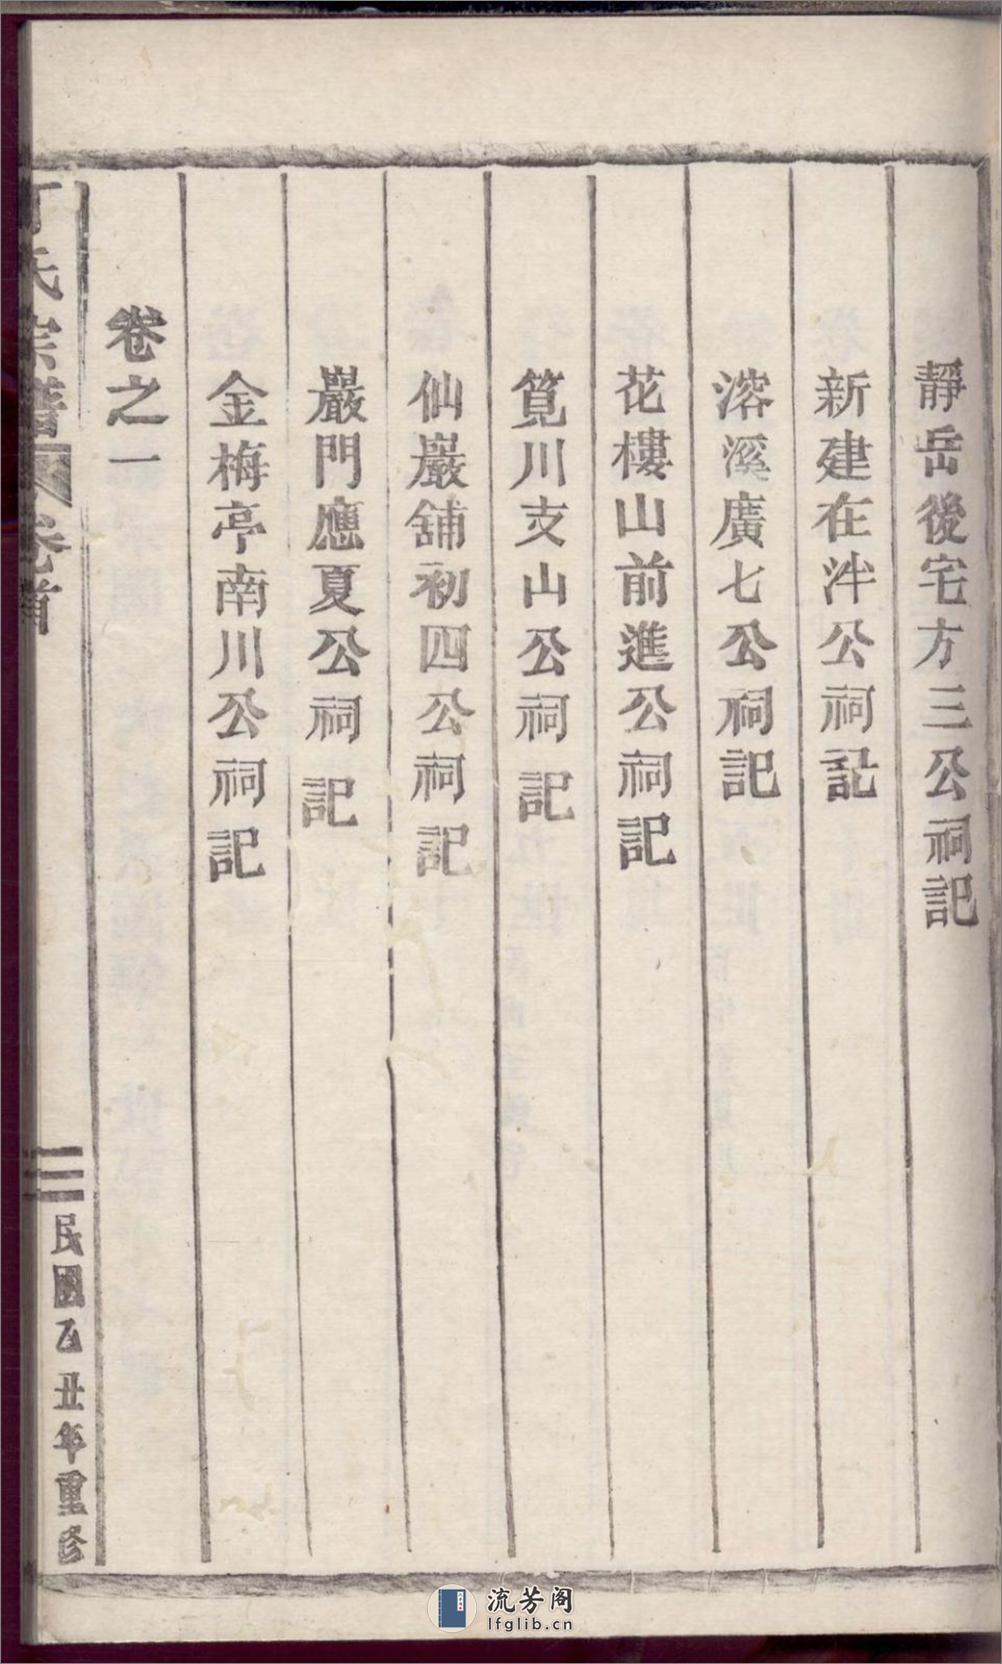 靜岳後宅方三公祠記
新建在泮公祠記
溶溪廣七公祠記
花樓山前進公祠記
筧川支山公祠記
仙巖舖初四公祠記
巖門應夏公祠記
金梅亭南川公祠記
卷之一
丁氏宗譜 卷首
二 民國乙丑年重修
流芳阁
lfglib.cn